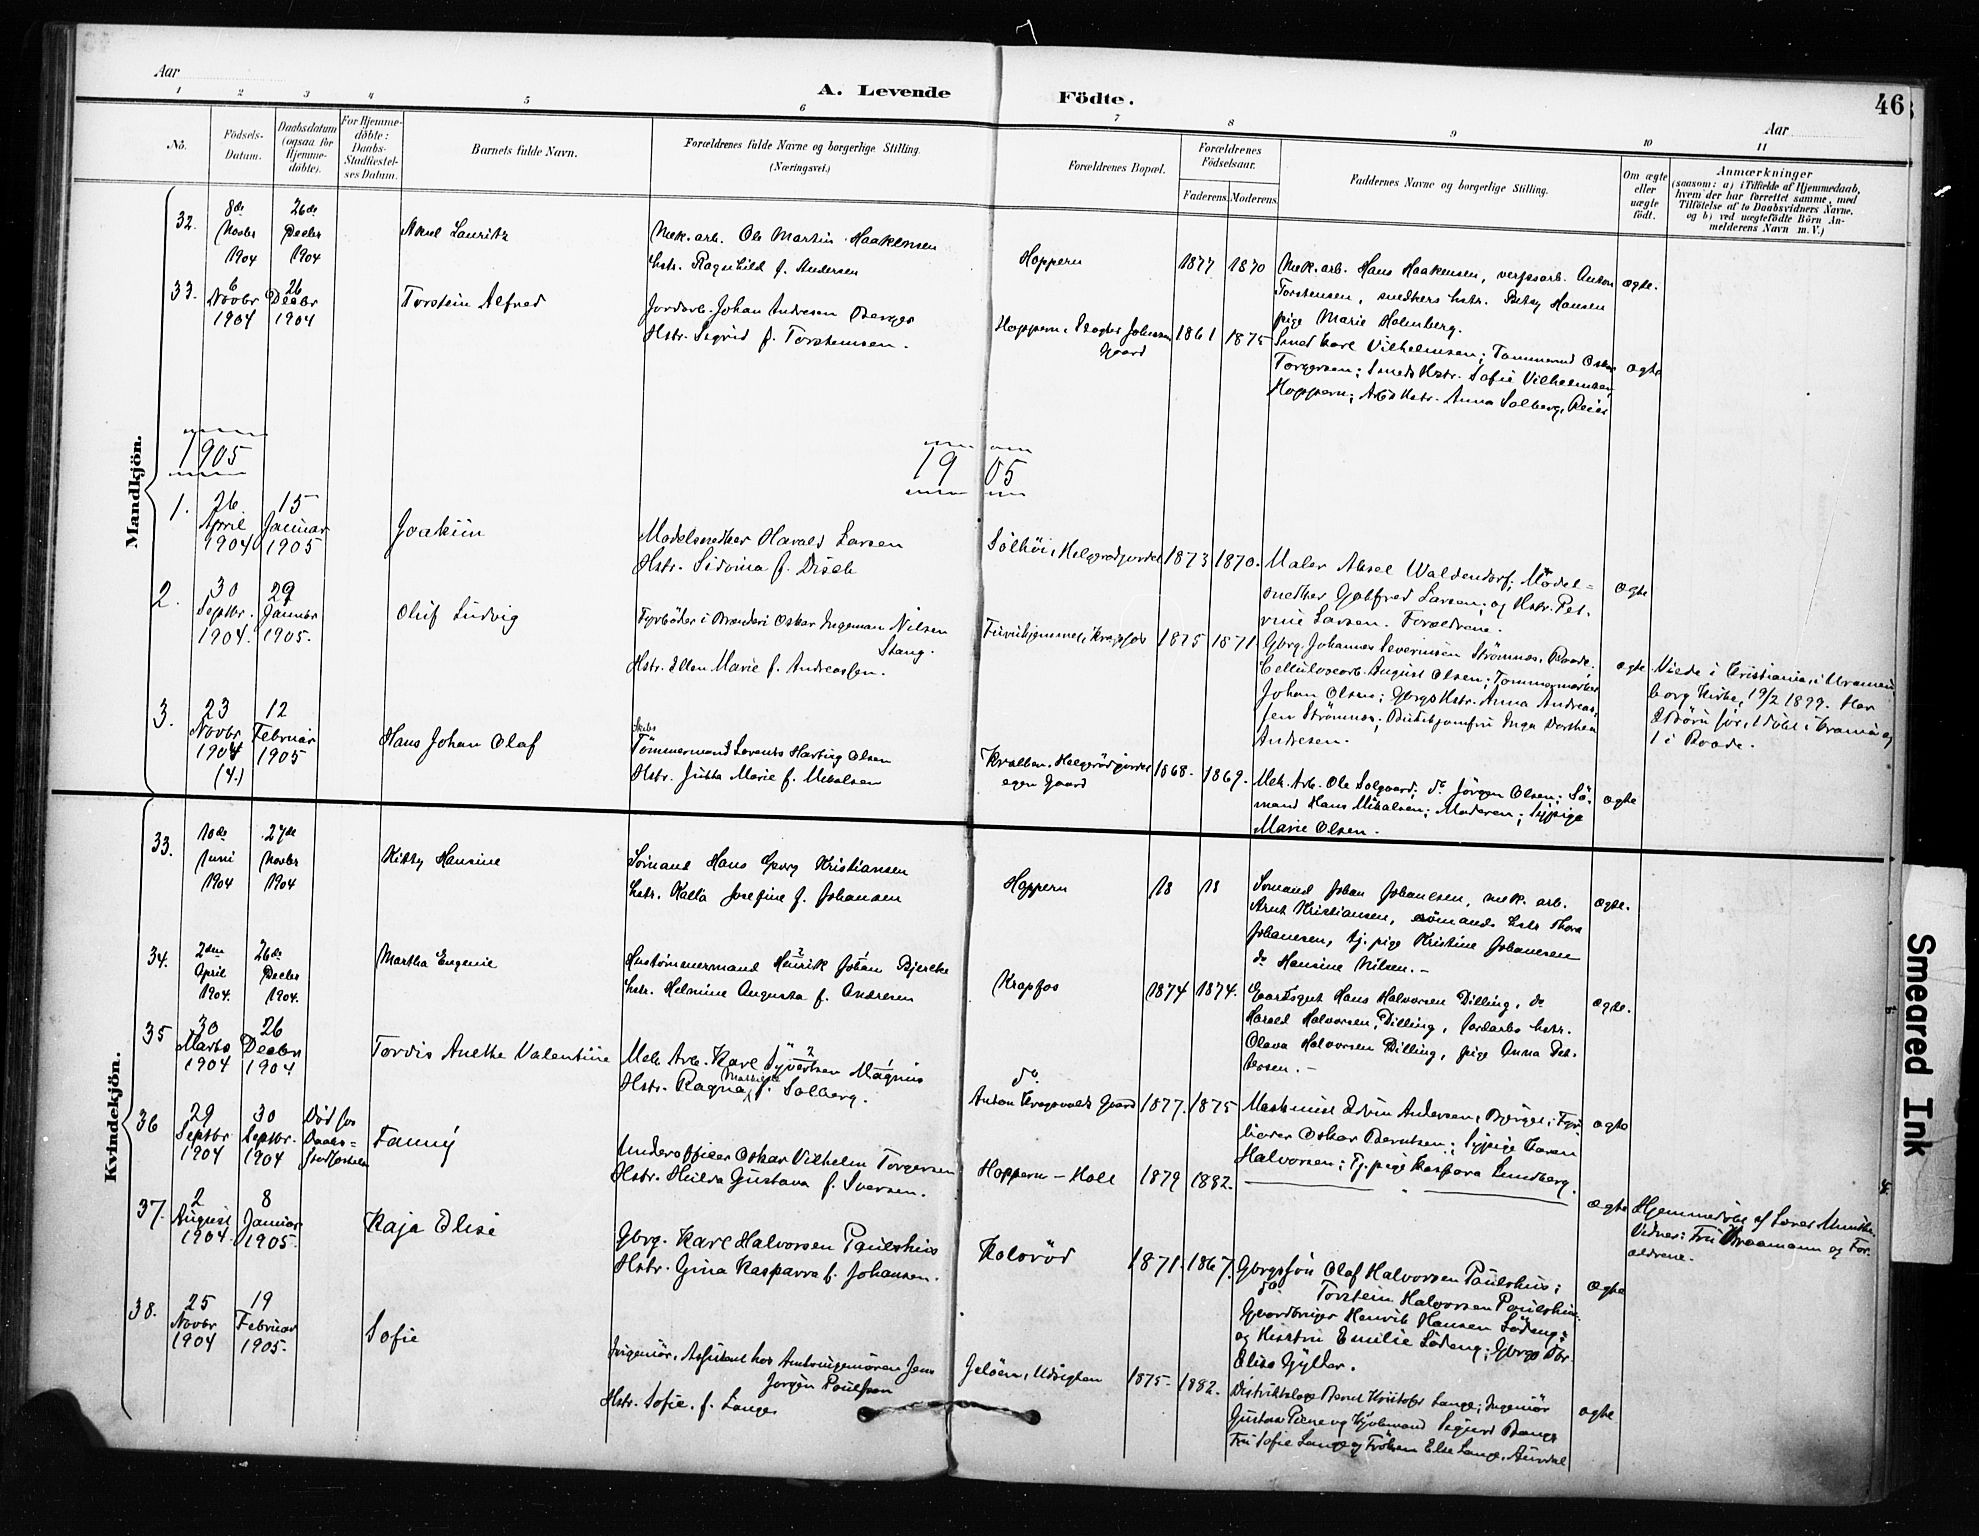 Aar
A. Levende Födte.
46
Aar
1 2 3 4 5 6 7 8 9 10 11
No.
Födsels-Datum.
Daabsdatum (ogsaa for Hjemme-döbte).
For Hjemme-döbte: Daabs-Stadfæstel-ses Datum.
Barnets fulde Navn.
Forældrenes fulde Navne og borgerlige Stilling.
(Næringsvei.)
Forældrenes Bopæl.
Forældrenes Födselsaar.
Faderens. Moderens.
Faddernes Navne og borgerlige Stilling.
Om ægte eller uægte födt.
Anmærkninger
(saasom: a) i Tilfælde af Hjemmedaab,
hvem der har forrettet samme, med
Tilföielse af to Daabsvidners Navne,
og b) ved uægtefödte Börn An-
melderens Navn m. V.)
Mandkjön.
32. 8de Novbr 1904
26de Decbr 1904
Aksel Lauritz
Mek. arb. Ole Martin Haakensen
hstr. Ragnhild f. Andersen
Hoppern
1877 1870
Mek. arb. Hans Haakensen, verftsarb. Anton
Torstensen, snedkers hstr. Betsy Hansen
pige Marie Holmberg.
ægte.
33. 6 Novbr 1904
26 Decbr 1904
Torstein Alfred
Jordarb. Johan Andresen Berger
Hstr. Sigrid f. Torstensen.
Hoppern, Slagter Johnsen
Gaard
1861 1875
Smed Carl Vilhelmsen; Tømmermd Oskar
Torgersen; Smeds Hstr. Sofie Vilhelmsen,
Hoppern; Arbs Hstr. Anna Solberg, Reier
ægte
1905
1905
1. 26 April 1904
15 Januar 1905
Joakim
Modelsnedker Harald Larsen
Hstr. Sidvina f. Disch
Solhöi, Helgerödgjordet
1873 1870.
Maler Aksel Waldendorf, Model=
snedker Gotfred Larsen; og Hstr. Pet-
rine Larsen. Forældrene.
ægte
2. 30 Septbr. 1904.
29 Januar 1905.
Oluf Ludvig
Fyrböter i Brænderi Oskar Ingeman Nilsen
Stang.
Hstr. Ellen Marie f. Andreassen.
Furuhjemmet, Krapfos
1875 1871.
Gbrg. Johannes Severinsen Strømnes, Raade;
Cellulosearb. August Olsen; Tømmermester
Johan Olsen; Gbrgs Hstr. Anna Andreas-
sen Strømnes; Butikjomfru Inga Dorthea
Andresen.
ægte
Viede i Kristiania, i Uranien
borg Kirke, 19/2 1899. Har
2 börn för, 1 döbt i Urania og
1 i Raade.
3. 23 Novbr 1904 (4.)
12 Februar 1905
Hans Johan Olaf
Skibs
Tömmermand Lorents Hartvig Olsen
Hstr. Jutta Marie f. Mikalsen
Krallen, Helgerödgjordet
egen Gaard
1868. 1869.
Mek. Arb. Ole Solgaard; do Jörgen Olsen; Sö-
mand Hans Mikalsen; Moderen; Sypige
Marie Olsen.
ægte
Kvindekjön.
33. 10de Juni 1904
27de Novbr 1904
Kitty Hansine
Sömand Hans Georg Kristiansen
hstr. Kalla Josefine f. Johansen
Hoppern
18 18
Sömand Johan Johansen, mek. arb.
Arnt Kristiansen, sömands hstr Thora
Johansen, tj. pige Kristine Johansen
do Hansine Nilsen. –
ægte.
34. 2den April 1904.
26de Decbr 1904.
Martha Eugenie
Hustömmermand Henrik Johan Bjercke
hstr. Helmine Augusta f. Andresen
Krapfos
1874 1874.
Gaardsgut Hans Halvorsen Dilling, do
Harald Halvorsen, Dilling, jordarbs hstr.
Olava Halvorsen Dilling, pige Anna Pet-
tersen. –
ægte.
35 30 Marts 1904
26 Decbr 1904
Tordis Anethe Valentine
Mek. Arb. Karl Syvertsen Magnus
Hstr. Ragna Mathilde f. Solberg.
do.
Anton Kragsvolds Gaard
1877. 1875
Maskinist Edvin Andersen, Bjerget; Fyr-
böter Oskar Berntsen; Sypige Karen
Halvorsen; Tj. pige Kaspara Lundberg.
ægte
36 29 Septbr 1904
30 Septbr. 1904
Död för
Daabs=
stadfæstelse
Fanny
Underofficer Oskar Vilhelm Torgersen
Hstr. Hulda Gustava f. Iversen.
Hoppern – Moss
1879 1882.
ægte
Hjemmedöbt af Lærer Munthe
Vidner: Fru Kraamann og For-
ældrene.
37. 2 August 1904.
8 Januar 1905.
Kaja Elise
Gbrg. Karl Halvorsen Paulshus
Hstr. Gina Kasparra f. Johansen.
Kolsröd
1871. 1867.
Gbrgssön Olaf Halvorsen Paulshus;
do Torstein Halvorsen Paulshus.
Gaardbruger Henrik Hansen Södeng
og Hustru Emilie Södeng; Gbrgs Dtr.
Elise Gylter.
ægte
38. 25 Novbr 1904
19 Februar 1905.
Sofie
Ingeniör, Assistent hos Amtsingeniören Jens
Jörgen Paulsson
Hstr. Sofie. f. Lange
Jelöen, Udsigten
1875. 1882.
Distriktslæge Bernt Kristofer Lange; Ingeniör
Gustav Piene og Kjöbmand Sigurd Bange
Fru Sofie Lange og Fröken Else Lange, Aurdal
ægte
Smeared Ink